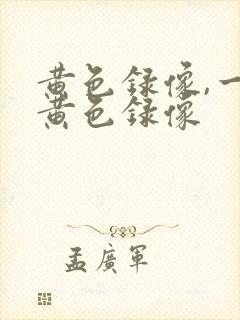 黄色録像,一
黄色録像
孟廣軍